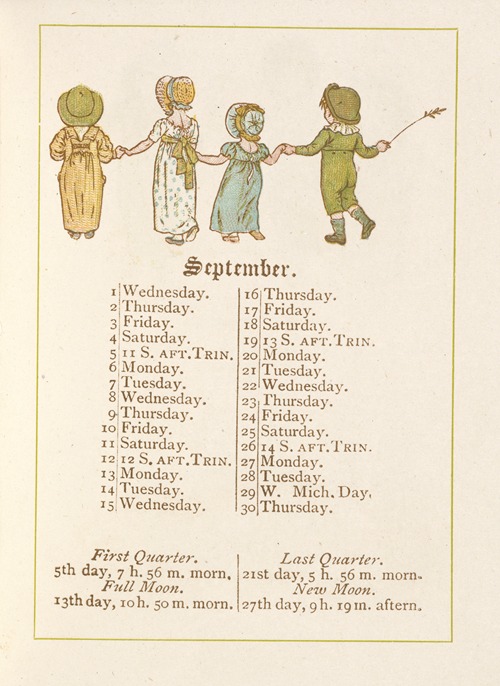 September.
1 Wednesday.
2 Thursday.
3 Friday.
4 Saturday.
5 11 S. AFT. TRIN.
6 Monday.
7 Tuesday.
8 Wednesday.
9 Thursday.
10 Friday.
11 Saturday.
12 12 S. AFT. TRIN.
13 Monday.
14 Tuesday.
15 Wednesday.
16 Thursday.
17 Friday.
18 Saturday.
19 13 S. AFT. TRIN.
20 Monday.
21 Tuesday.
22 Wednesday.
23 Thursday.
24 Friday.
25 Saturday.
26 14 S. AFT. TRIN.
27 Monday.
28 Tuesday.
29 W. Mich. Day,
30 Thursday.
First Quarter.
5th day, 7 h. 56 m. morn.
Full Moon.
13th day, 10 h. 50 m. morn.
Last Quarter.
21st day, 5 h. 56 m. morn.
New Moon.
27th day, 9 h. 19 m. aftern.